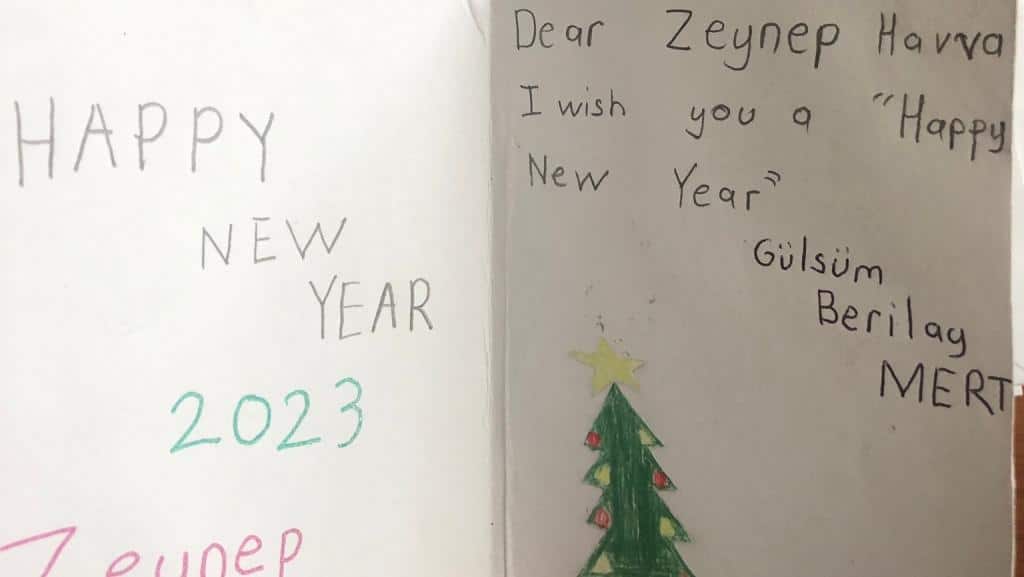 HAPPY
NEW
YEAR
2023
Zeynep
Dear Zeynep Havva
I wish you a "Happy
New Year"
Gülsüm
Berilay
MERT